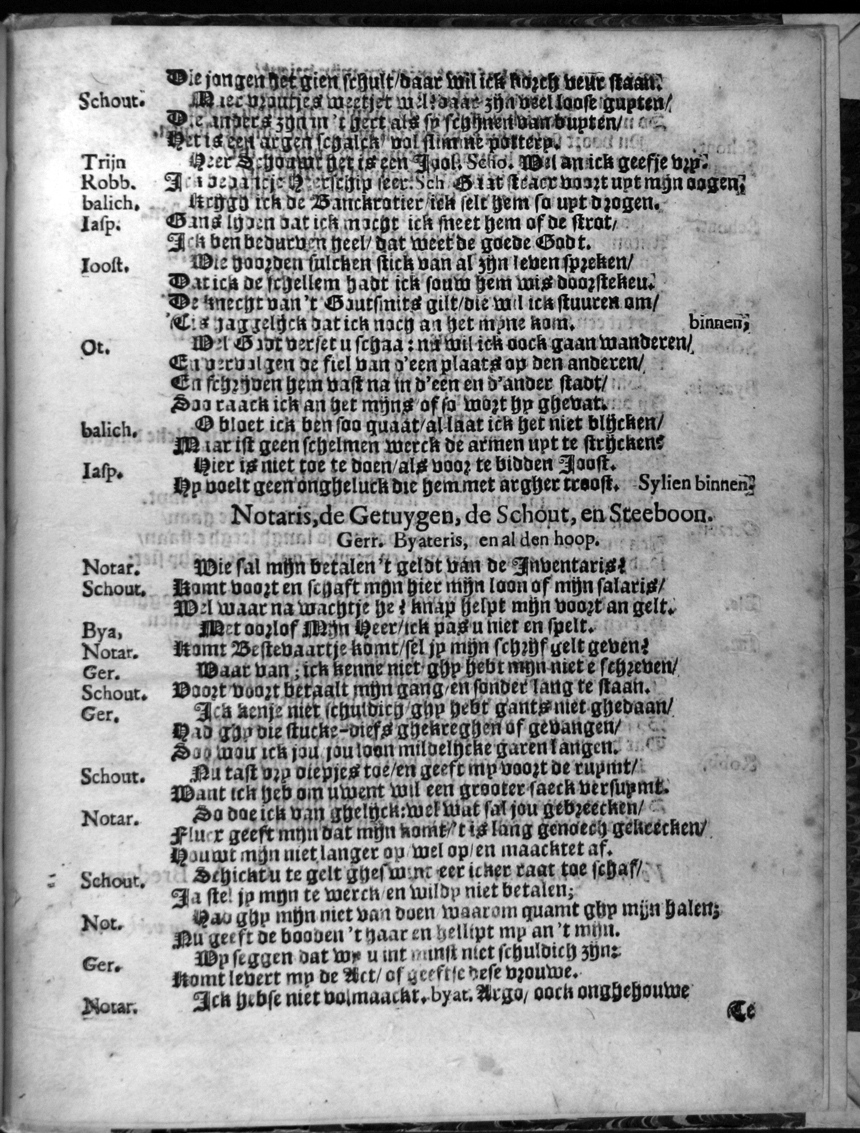 Die jongen het gien schult/daar wil ick borch veur staan.
Schout. Maer vrouttjes weetjet wel? daar zijn veel loose guyten/
Die anders zijn in 't hert als sy schijnen van buyten/
Het is een argen schalck vol slimme potterp.
Trijn Heer Schouwt het is een Jool. Scho. Wel an ick geefje vry.
Robb. Ick bedanctje Heerschip seer. Sch. Gaat steackr voort uyt mijn oogen;
balich. Krijgh ick de Banckrotier/ick selt hem so uyt drogen.
Iasp. Gans lyden dat ick mocht ick sneet hem of de strot/
Ick ben bedurven heel/ dat weet de goede Godt.
Ioost. Wie hoorden sulcken stick van al zijn leven spreken/
Dat ick de schellem hadt ick souw hem wis doorsteken.
De knecht van 't Goutsmits gilt/die wil ick stuuren om/
't Is haggelijck dat ick noch an het mijne kom. binnen;
Ot. Wel Godt verset u schaa: nu wil ick oock gaan wanderen/
En vervolgen de fiel van d'een plaats op den anderen/
En schrijven hem vast na in d'een en d'ander stadt/
Soo raack ick an het mijns/of so wort hy ghevat.
balich. O bloet ick ben soo quaat/al laat ick het niet blijcken/
Maar ist geen schelmen werck de armen uyt te strijcken?
Iasp. Hier is niet toe te doen/als voor te bidden Joost.
Hy voelt geen ongheluck die hem met argher troost. Sylien binnen.
Notaris, de Getuygen, de Schout, en Steeboon.
Gerr. Byateris, en al den hoop.
Notar. Wie sal mijn betalen 't geldt van de Inventaris?
Schout. Komt voort en schaft mijn hier mijn loon of mijn salaris/
Wel waar na wachtje he? knap helpt mijn voort an gelt.
Bya, Met oorlof Mijn Heer/ick pas u niet en spelt.
Notar. Komt Bestevaartje komt/sel jy mijn schrijf gelt geven?
Ger. Waar van; ick kenne niet ghy hebt mijn niet e schreven/
Schout. Voort voort betaalt mijn gang/en sonder lang te staan.
Ger. Ick kenje niet schuldich/ghy hebt gants niet ghedaan/
Had ghy die stucke-diefs ghekreghen of gevangen/
Soo wou ick jou jou loon mildelijcke garen langen.
Schout. Nu tast vry diepjes toe/en geeft my voort de ruymt/
Want ick heb om uwent wil een grooter saeck versuymt.
Notar. So doe ick van ghelijck: wel wat sal jou gebreecken/
Flucx geeft mijn dat mijn komt/'t is lang genoech gekeecken/
Houwt mijn niet langer op/wel op/en maacktet af.
Schout. Schickt u te gelt gheswint eer icker raat toe schaf/
Ja stel jy mijn te werck/en wildy niet betalen;
Not. Had ghy mijn niet van doen waarom quamt ghy mijn halen;
Nu geeft de booden 't haar en hellipt my an 't mijn.
Ger. Wy seggen dat wy u int minst niet schuldich zijn:
Komt levert my de Act/ of geeftse dese vrouwe.
Notar. Ick hebse niet volmaackt. byat. Argo/ oock onghehouwe
Te